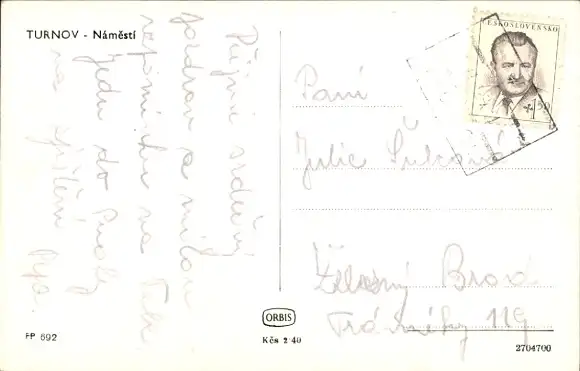 TURNOV - Náměstí
Přijmi srdečný
pozdrav a milou
na Tebe
Jedu do Prahy
na
Pepa
ČESKOSLOVENSKO
1,50
Paní
Julie
Železný Brod
Trávníky 119
ORBIS
Kčs 2·40
FP 692
2704700